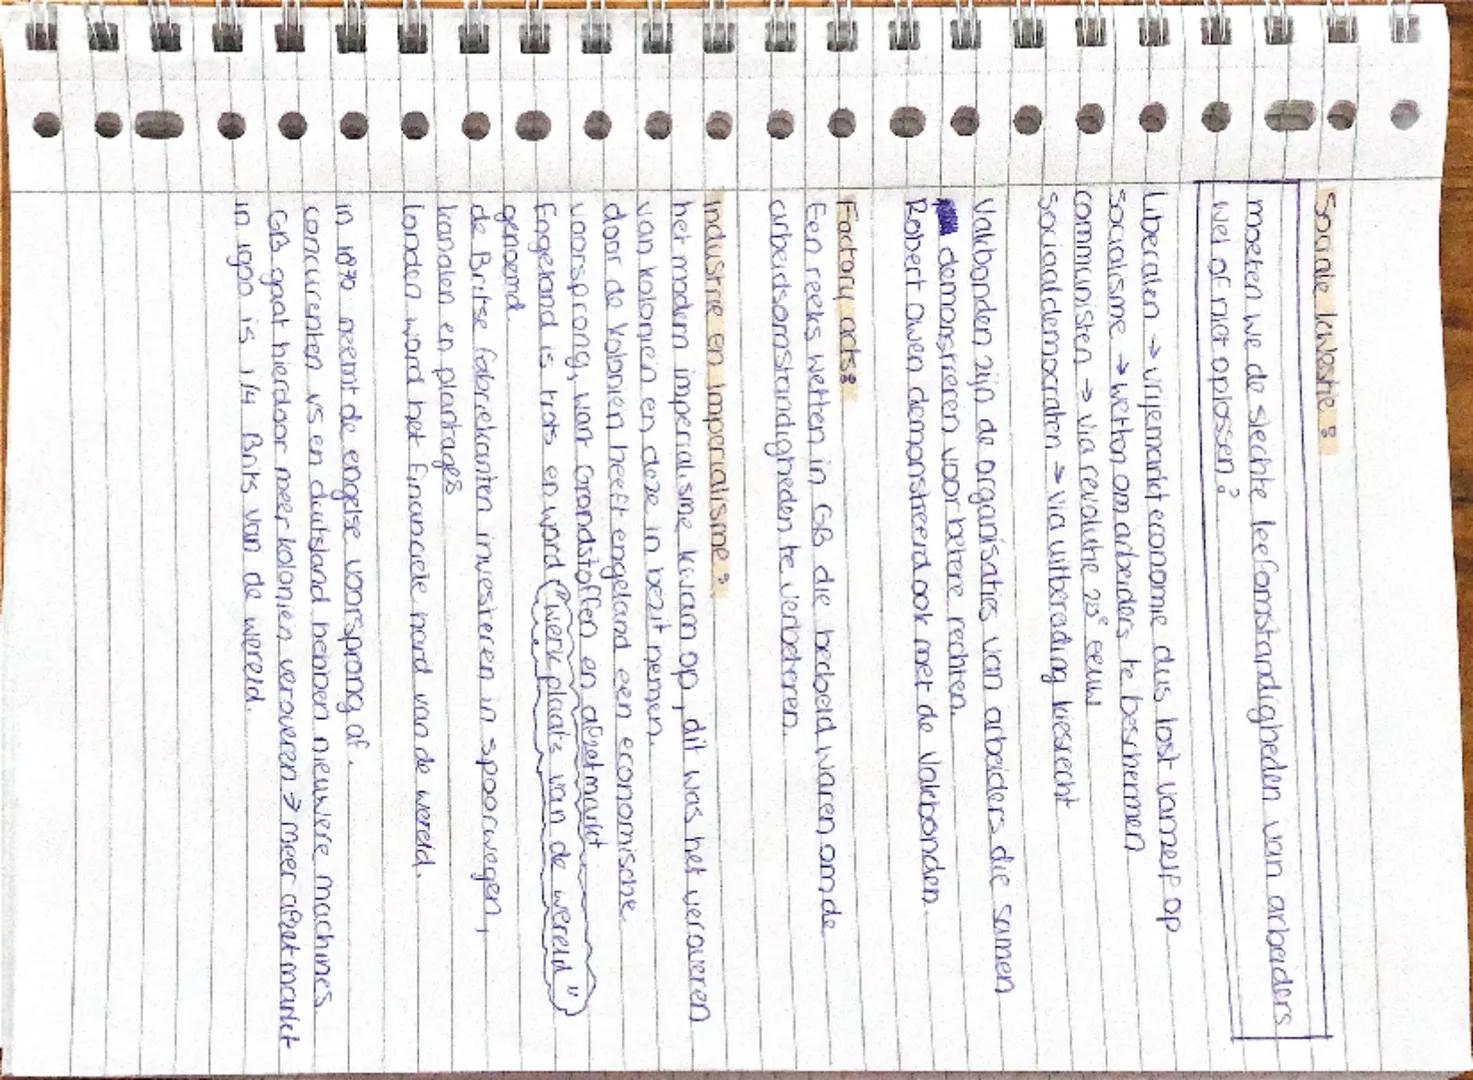 Sociale kwestie:
moeten we de slechte leefomstandigheden van arbeiders
wel of niet oplossen?
liberalen → vrijemarkteconomie dus lost vanzelf op
socialisme → wetten om arbeiders te beschermen
communisten → via revolutie 20e eeuw
sociaaldemocraten → via uitbreiding kiesrecht
Vakbonden zijn de organisaties van arbeiders die samen
demonstreren voor betere rechten.
Robert owen demonstreerd ook met de vakbonden.
Factory acts:
Een reeks wetten in GB die bedoeld waren om de
arbeidsomstandigheden te verbeteren.
industrie en imperialisme:
het modern imperialisme kwam op, dit was het veroveren
van koloniën en deze in bezit nemen.
door de koloniën heeft engeland een economische
voorsprong, van grondstoffen en afzetmarkt
Engeland is trots en word ("werkplaats van de wereld")
genoemd.
de Britse fabriekanten investeren in spoorwegen,
kanalen en plantages
Londen word het financiele hard van de wereld.
in 1870 neemt de engelse voorsprong af.
concurrenten vs en duitsland hebben nieuwere machines.
GB gaat hierdoor meer koloniën veroveren → meer afzetmarkt
in 1900 is 1/4 Brits van de wereld.